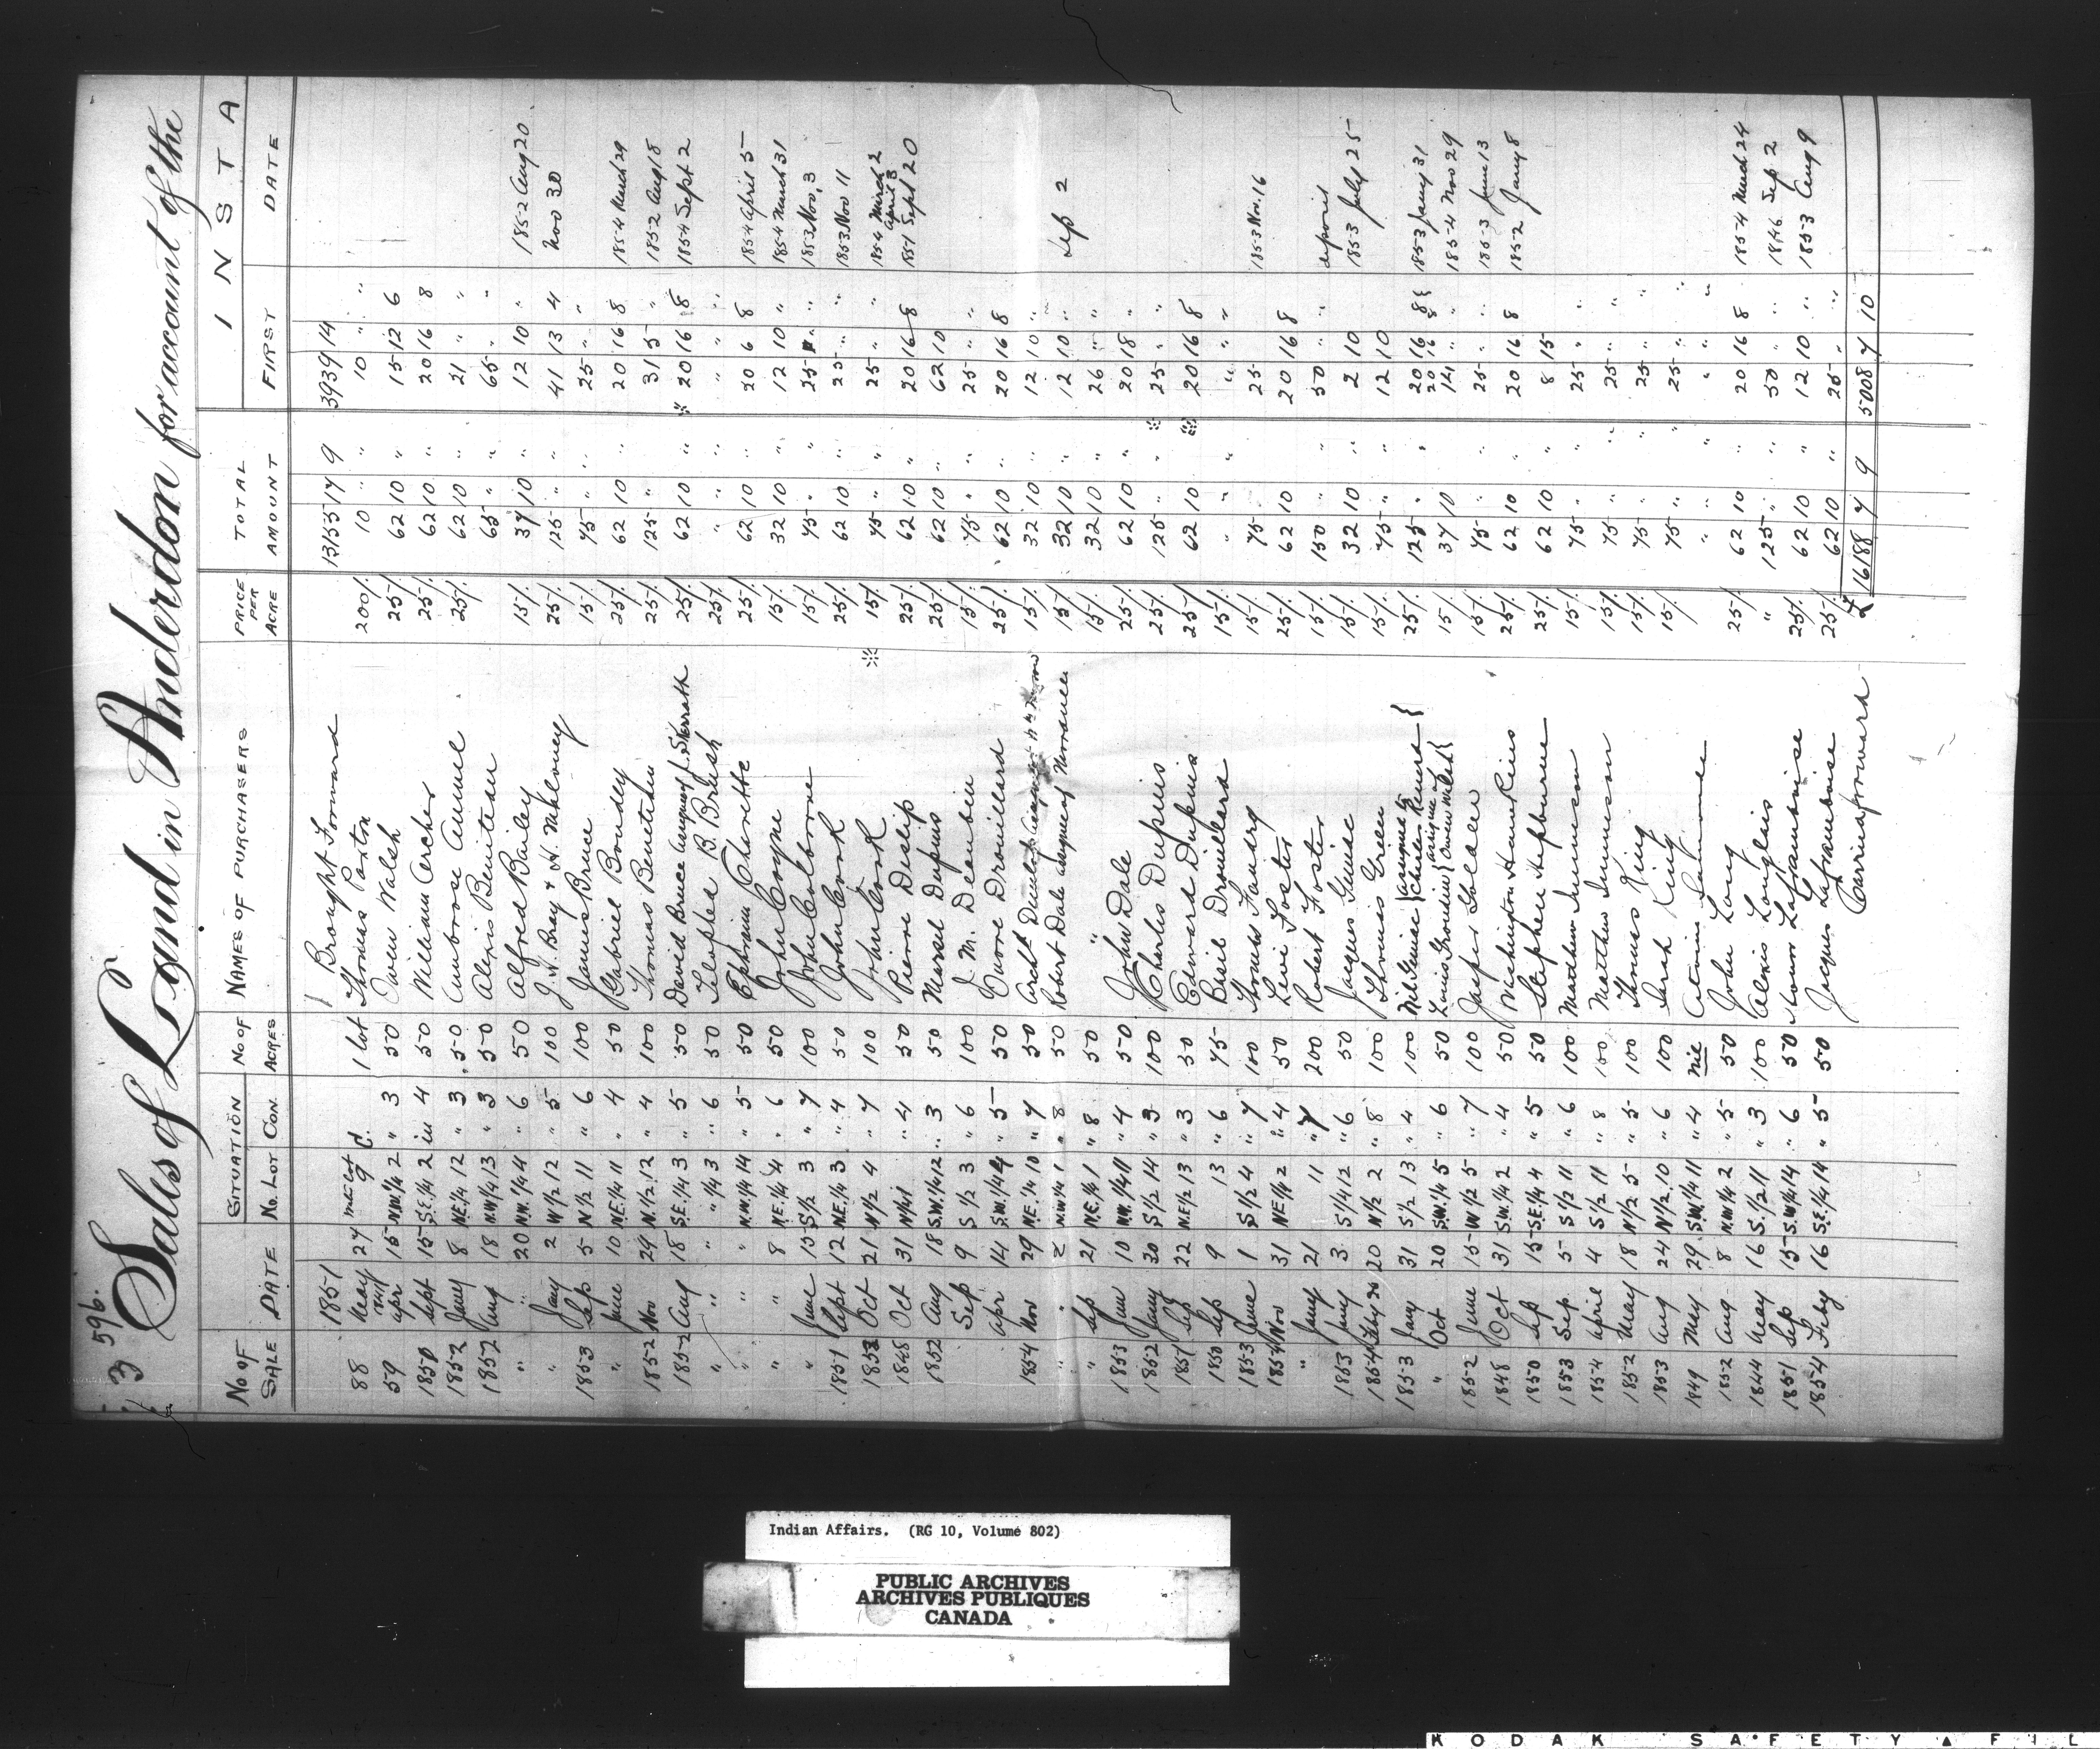 3 596.
Sales of Land in Anderdon for account of the
No OF SALE DATE SITUATION No. Lot Con. No OF ACRES NAMES OF PURCHASERS PRICE PER ACRE TOTAL AMOUNT I N S T A
FIRST DATE
1851 Brought Forward 13155 17 9 3939 14
88 May 27 9 C. 1 lot Thomas Paxton 200/. 10 " " 10 " "
59 1841 apr 15 N.W. 1/4 2 " 3 50 Owen Walsh 25/. 62 10 " 15 12 6
1850 Sept 15 S.E. 1/4 2 in 4 50 William Archer 25/. 62 10 " 20 16 8
1852 Jany 8 N.E. 1/4 12 " 3 50 Ambrose 25/. 62 10 " 21 " "
1852 Aug 18 N.W 1/4 13 " 3 50 Alexis Beniteau 65 " " 65 " "
" " 20 N.W. 1/4 4 " 6 50 Alfred Bailey 15/. 37 10 " 12 10 " 1852 Aug 20
" Jany 2 W 1/2 12 " 5 100 J. H. Bray & H. Maloney 25/. 125 " " 41 13 4 Nov 30
1853 Sep 5 N 1/2 11 " 6 100 James Bruce 15/. 75 " " 25 " "
" June 10 N.E. 1/4 11 " 4 50 Gabriel Bondy 25/. 62 10 " 20 16 8 1854 March 29
1852 Nov 29 N. 1/2 12 " 4 100 Thomas Beneteau 25/. 125 " " 31 5 " 1852 Aug 18
1852 Aug 18 S.E. 1/4 3 " 5 50 David Bruce assignee J. Skerrath 25/. 62 10 " 20 16 8 1854 Sept 2
" " " " 1/4 3 " 6 50 B. Brush 25/. " " " " " "
" " " N.W. 1/4 14 " 5 50 Ephraim Charette 25/. 62 10 " 20 6 8 1854 April 5
" " 8 N.E. 1/4 4 " 6 50 John Coyne 15/. 32 10 " 12 10 " 1854 March 31
" June 15 S 1/2 3 " 7 100 John Colborne 15/. 75 " " 25 " " 1853 Nov, 3
1851 Sept 12 N.E. 1/4 3 " 4 50 John Cook 25/. 62 10 25 " " 1853 Nov 11
1853 Oct 21 N 1/2 4 " 7 100 John Cook 15/. 75 " " 25 " " 1854 March 2 April 3
1848 Oct 31 N 1/4 1 " 4 50 Pierre Deslip 25/. 62 10 " 20 16 8 1851 Sept 20
1852 Aug 18 S.W. 1/4 12 " 3 50 Marsel Dupuis 25/. 62 10 " 62 10
Sep 9 S 1/2 3 " 6 100 J. M. 15/. 75 " " 25 " "
apr 14 S.W. 1/4 4 " 5 50 Drouillard 25/. 62 10 " 20 16 8
1854 Nov 29 N.E. 1/4 10 " 7 50 Archd 15/. 32 10 " 12 10 "
" " 2 N.W 1/4 1 " 8 50 Robert Dale assignee of 15/. 32 10 " 12 10 " Sep 2
" Sep 21 N.E. 1/4 1 " 8 50 " 15/. 32 10 " 26 " "
1853 June 10 N.W. 1/4 11 " 4 50 John Dale 25/. 62 10 " 20 18
1852 Jany 30 S 1/2 14 " 3 100 Charles Dupuis 25/. 125 " " 25 " "
1851 Sep 22 N.E 1/4 13 " 3 50 Edward Dupuis 25/. 62 10 20 16 8
1850 Sep 9 13 " 6 75 Basil Drouillard 15/. " " " " " "
1853 June 1 S 1/2 4 " 7 100 Thomas 15/. 75 25
1854 Nov 31 N.E 1/4 2 " 4 50 Levi Foster 25/. 62 10 20 16 8 1853 Nov. 16
" Jany 21 11 " 7 200 Robert Foster 15/. 150 " " 50 " " deposit
1853 Jany 3 S 1/4 12 " 6 50 Jacques 15/. 32 10 " 2 10 1853 July 25
1854 Feby 20 20 N 1/2 2 " 8 100 Thomas Green 15/. 75 " " 12 10
1853 Jany 31 S 1/2 13 " 4 100 assigned to Charles Renurd 25/. 125 " " 20 16 8 20 16 8 1853 Jany 31
" Oct 20 S.W. 1/4 5 " 6 50 Louis assignee of Owen Walsh 15/. 37 10 14 " " 1854 Nov 29
1852 June 15 W 1/2 5 " 7 100 Jasper Golden 15/. 75 " " 25 " " 1853 June 13
1848 Oct 31 S.W. 1/4 2 " 4 50 Washington 25/. 62 10 " 20 16 8 1852 Jany 8
1850 Sep 15 S.E. 1/4 4 " 5 50 Stephen Hepburne 25/. 62 10 " 8 15
1853 Sep. 5 S 1/2 11 " 6 100 Mathew 15/. 75 " " 25 " "
1854 april 4 S 1/2 11 " 8 100 Matthew 15/. 75 " " 25 " "
1852 May 18 N 1/2 5 " 5 100 Thomas King 15/. 75 " " 25 " "
1853 Aug 24 N 1/2 10 " 6 100 Sarah King 15/. 75 " " 25 " "
1849 May 29 S.W. 1/4 11 " 4 nil " " " " " "
1852 Aug 8 N.W. 1/4 2 " 5 50 John Long 25/. 62 10 " 20 16 8 1854 March 24
1844 May 16 S. 1/2 11 " 3 100 Alexis Langlais " 125 " " 50 " " 1846 Sep 2
1851 Sep 15 S.W. 1/4 14 " 6 50 Laframboise 25/. 62 10 " 12 10 " 1853 Aug 9
1854 Feby 16 S.E. 1/4 14 " 5 50 Jacques Laframboise 25/. 62 10 " 25 " "
Carried forward £ 16188 7 9 5008 7 10
Indian Affairs. (RG 10, Volume 802)
PUBLIC ARCHIVES
ARCHIVES PUBLIQUES
CANADA
KODAK SAFETY FIL